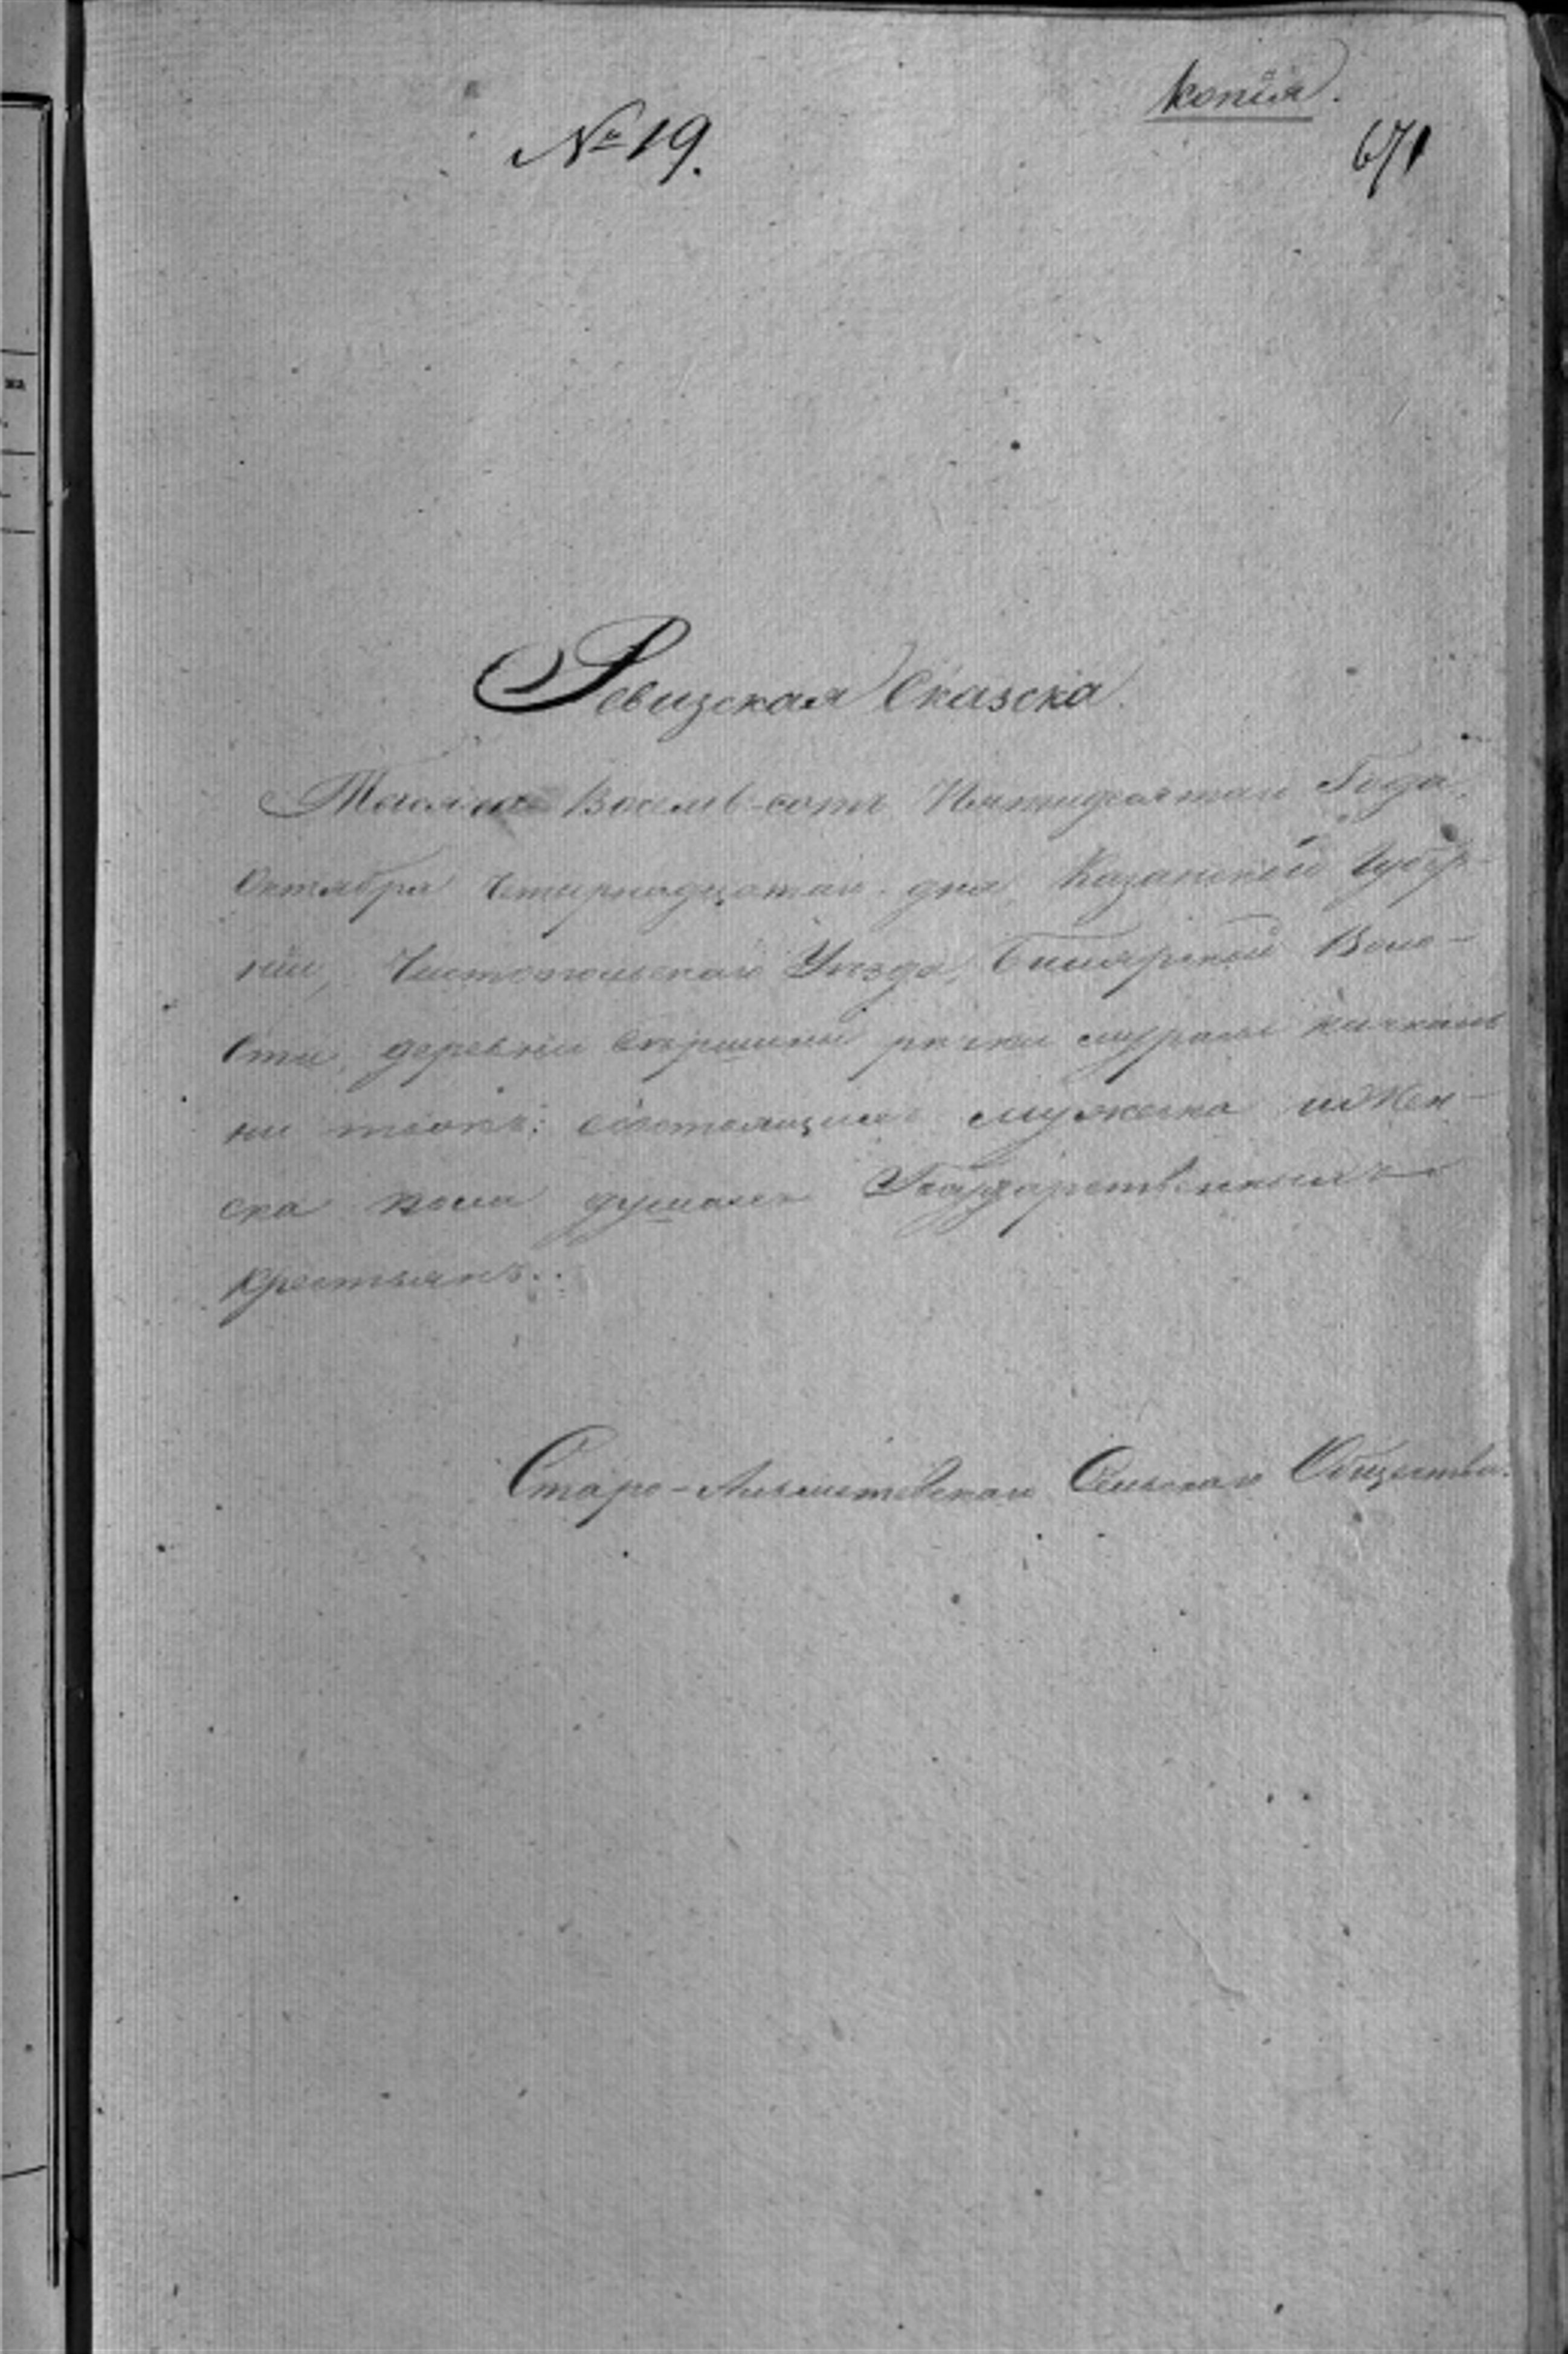 Копія.
№ 19.
671
Ревизская Сказска.
Тысяча Восемь-сотъ Пятидесятаго Года,
Октября Четырнадцатаго дня, Казанской Губер-
ніи, Чистопольскаго Уѣзда, Билярской Воло-
сти, деревни Вершины рѣчки
ни состоящимъ мужеска и Жен-
ска пола душамъ Государственныхъ
Крестьянъ.
Старо-Альметевскаго Сельскаго Общества.